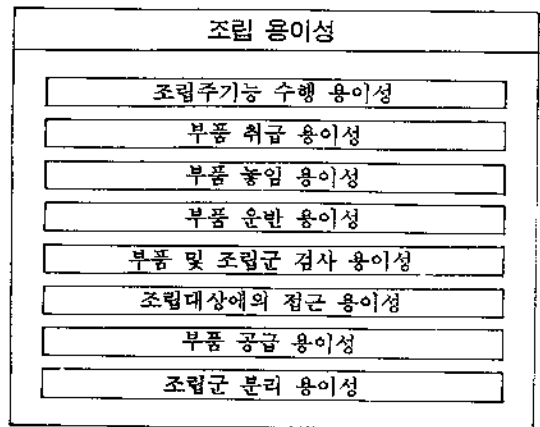 조립 용이성
조립주기능 수행 용이성
부품 취급 용이성
부품 놓임 용이성
부품 운반 용이성
부품 및 조립군 검사 용이성
조립대상에의 접근 용이성
부품 공급 용이성
조립군 분리 용이성